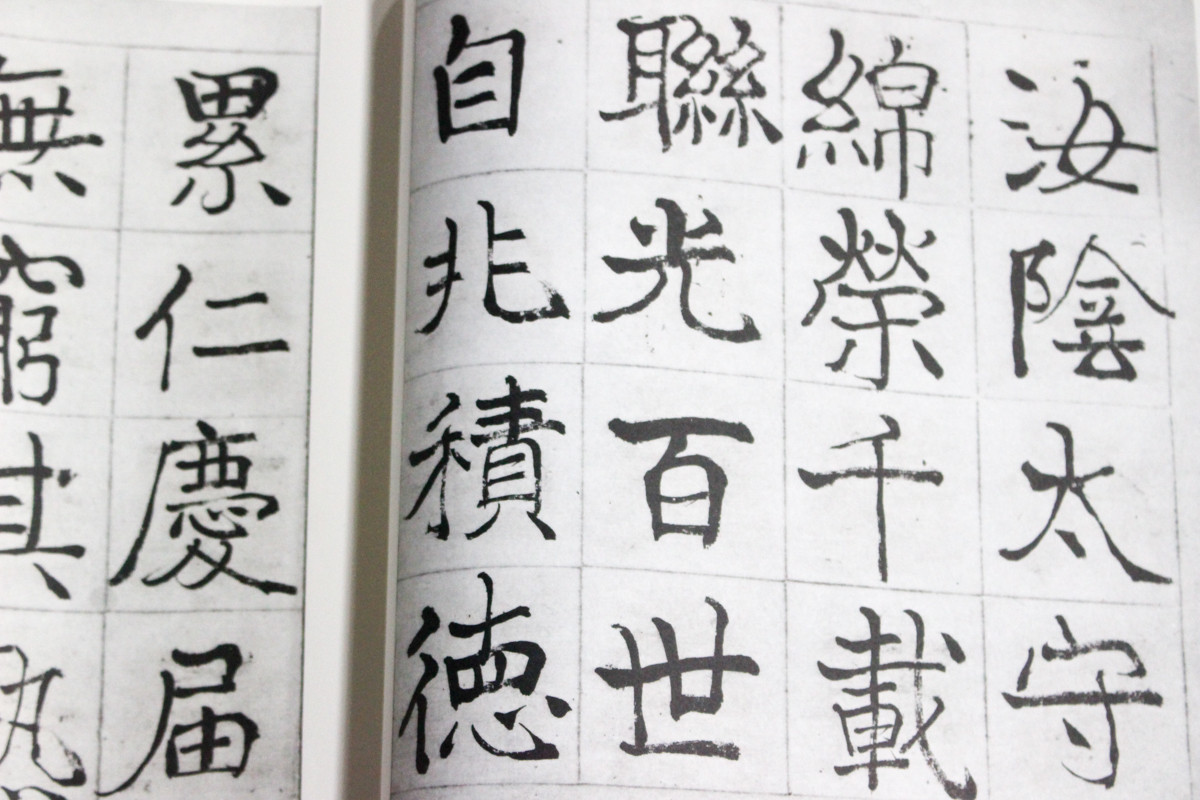 汝陰太守
綿榮千載
聯光百世
自非積徳
累仁慶届
無窮其孰